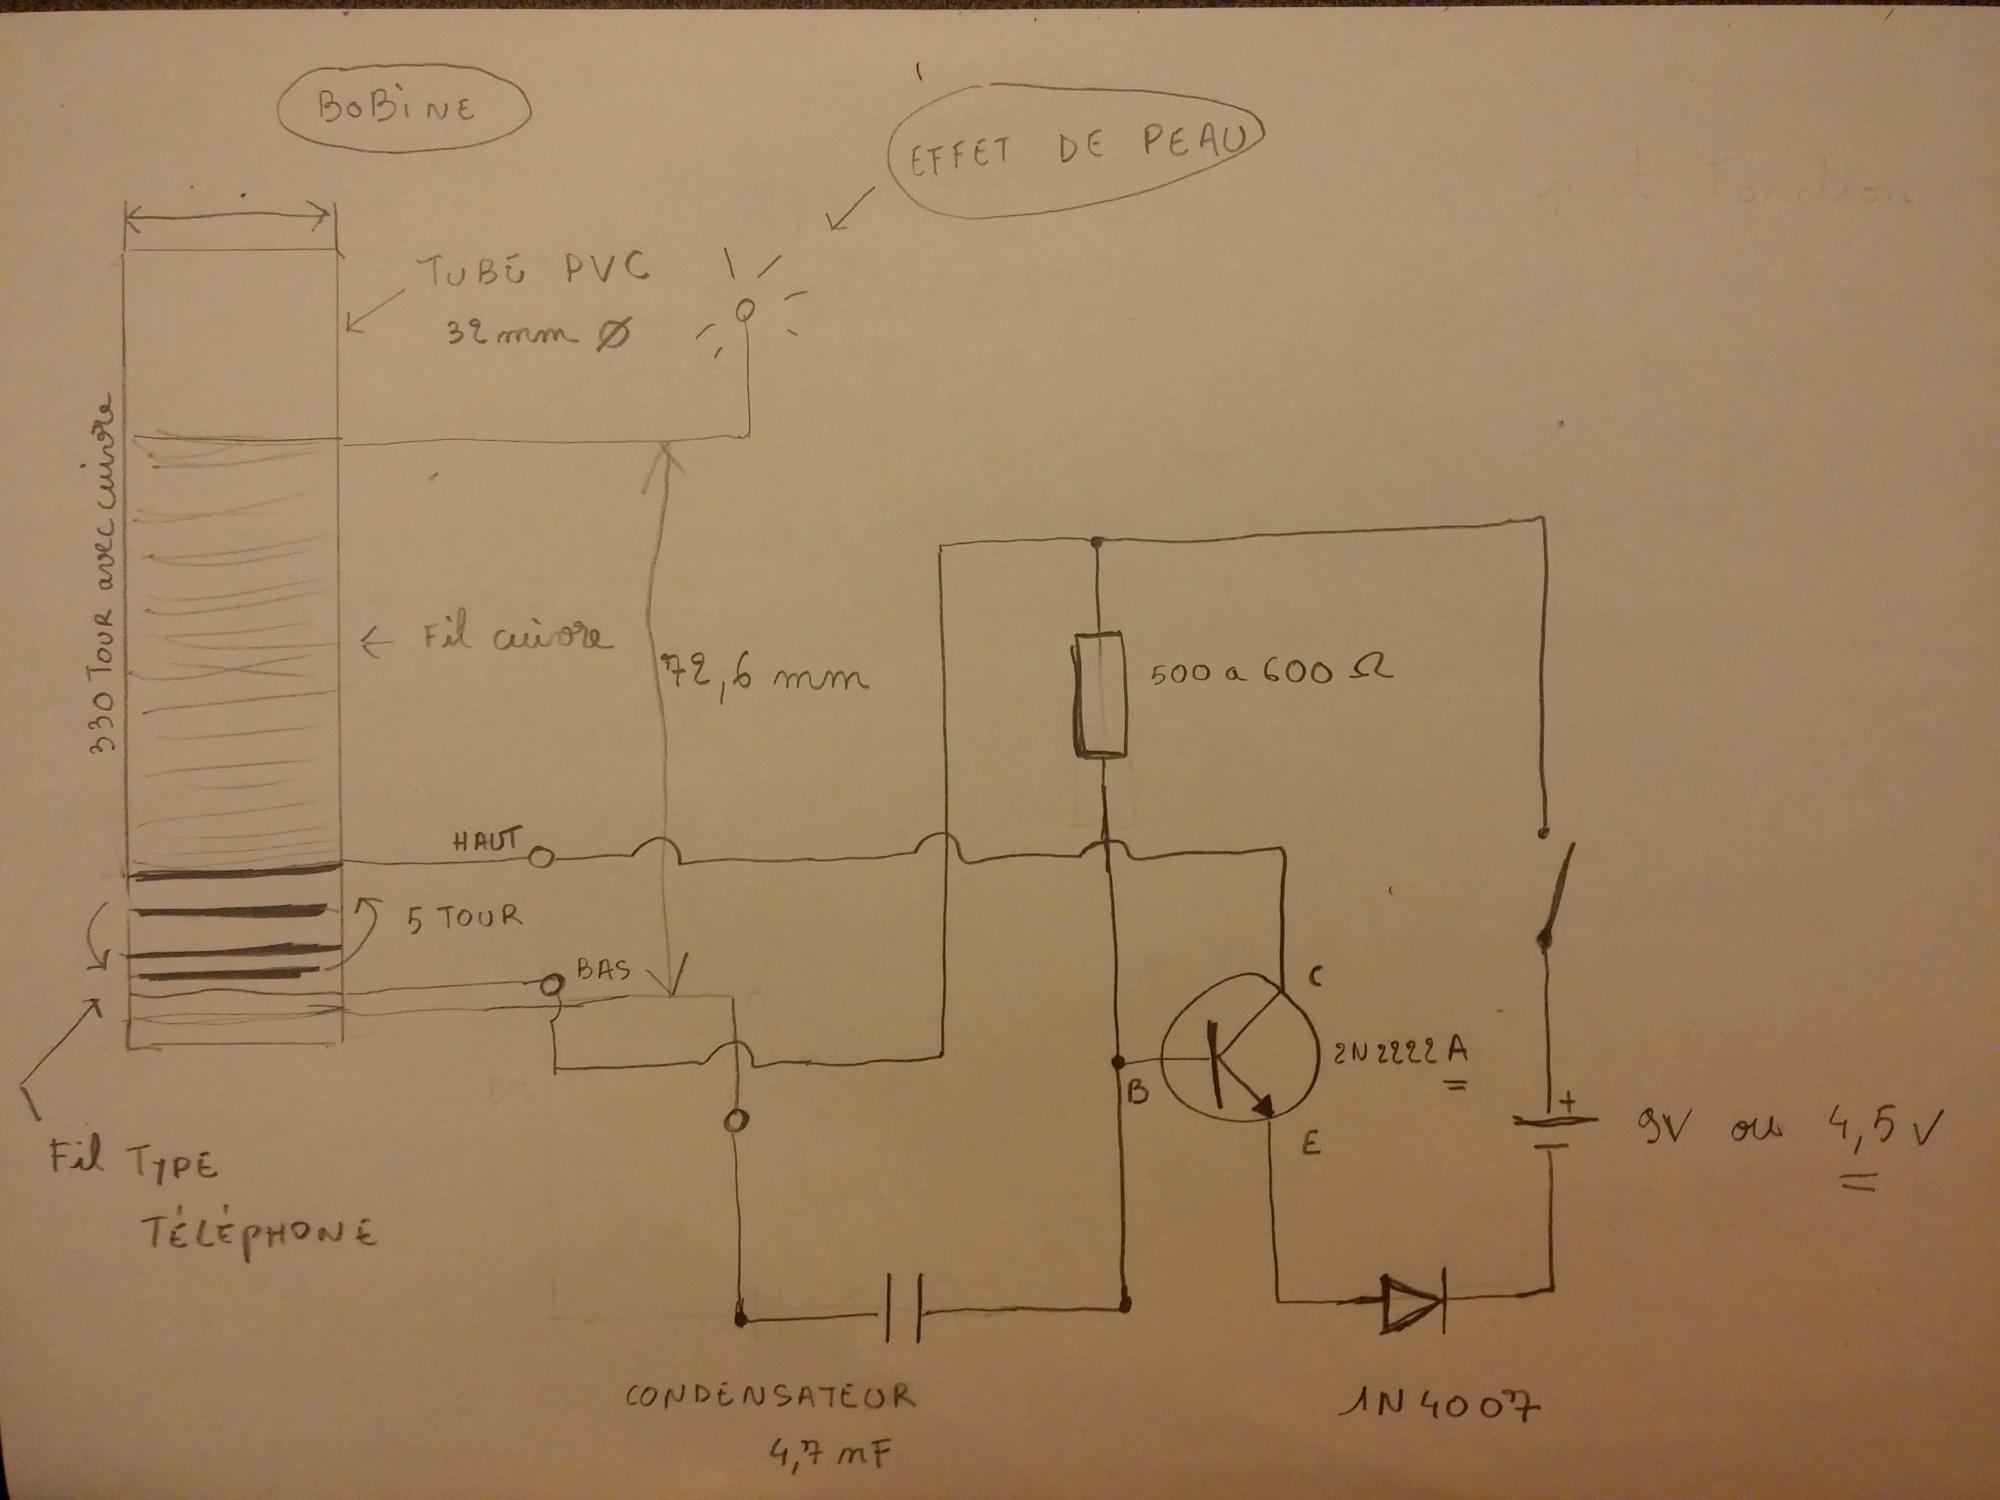 BOBINE
EFFET DE PEAU
TUBE PVC
32 mm Ø
330 TOUR avec cuivre
Fil cuivre
72,6 mm
500 a 600 Ω
HAUT
5 TOUR
BAS
C
2N2222 A
B
E
+
9V ou 4,5 V
Fil TYPE
TÉLÉPHONE
CONDENSATEUR
4,7 nF
1N4007